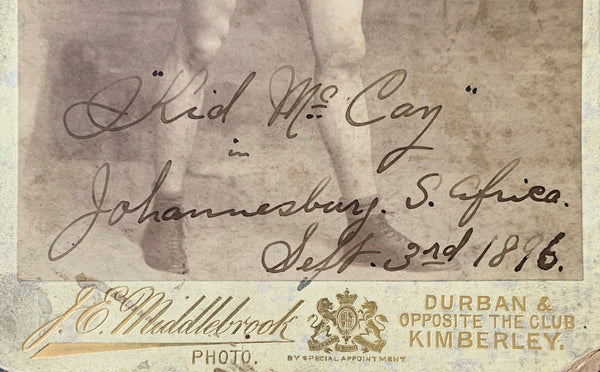 "Kid McCoy"
in
Johannesburg. S. Africa.
Sept. 3rd 1896.
J. E. Middlebrook
PHOTO.
BY SPECIAL APPOINTMENT
DURBAN &
OPPOSITE THE CLUB
KIMBERLEY.